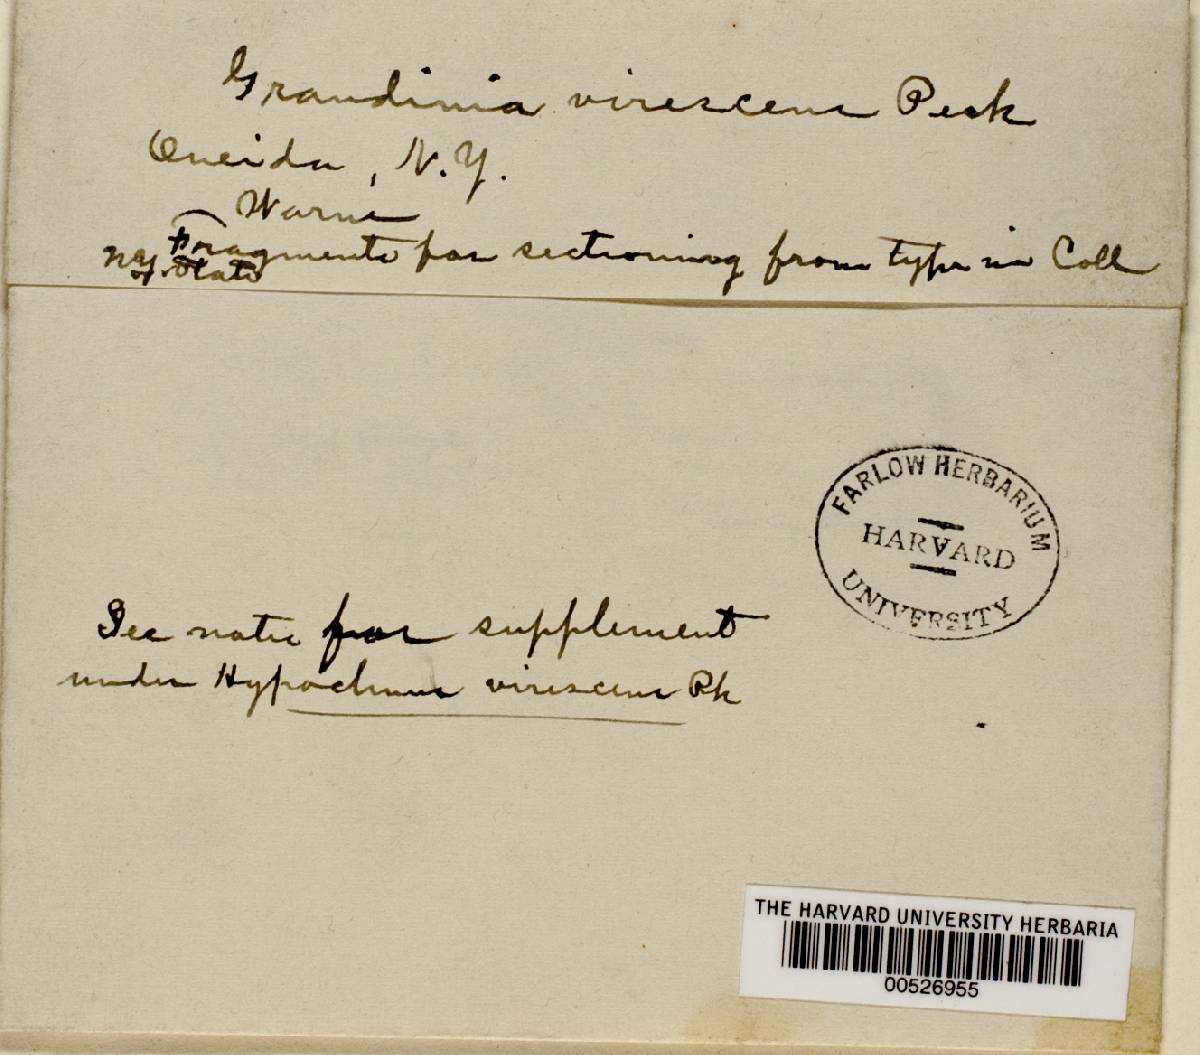 Grandinia virescens Peck
Oneida, N.Y.
Warne
Fragments for sectioning from type in Coll
N.Y. State
See note for supplement
under Hypochnus virescens Pk
FARLOW HERBARIUM
HARVARD
UNIVERSITY
THE HARVARD UNIVERSITY HERBARIA
00526955